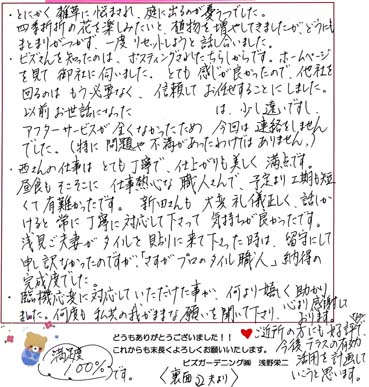 ・とにかく雑草に悩まされ、庭に出るのが憂うつでした。
四季折折の花を楽しみたいと、植物を増やしてきましたが、どうにも
まとまりがつかず、一度リセットしようと話し合いました。
・ビズさんを知ったのは、ポスティングされたちらしからです。ホームページ
を見て御社に伺いました。とても感じが良かったので、他社を
回るのはもう必要なく、信頼してお任せすることにしました。
以前お世話になった は、少し遠いですし、
アフターサービスが全くなかったため 今回は連絡をしません
でした。(特に問題や不満があったわけではありません。)
・西さんの仕事はとても丁寧で、仕上がりも美しく満点です。
昼食もそこそこに 仕事熱心な職人さんで、予定より工期も短
くて有難かったです。新田さんも大変礼儀正しく、話しか
けると常に丁寧に対応して下さって気持ちが良かったです。
浅見ご夫妻がタイルを貼りに来て下さった時は、留守にして
申し訳なかったのですが、「さすがプロのタイル職人」納得の
完成度でした。
・臨機応変に対応していただけた事が、何より嬉しく助かり
ました。何度も私共の我がままな願いを聞いて下り、心より感謝して
おります。
どうもありがとうございました!!
これからも末長くよろしくお願いします。
ビズガーデニング㈱ 浅野栄二
満足度
100%です。
♥ご近所の方にも好評で、
今後テラスの有効
活用を計画して
いこうと思います。
〈裏面②より〉